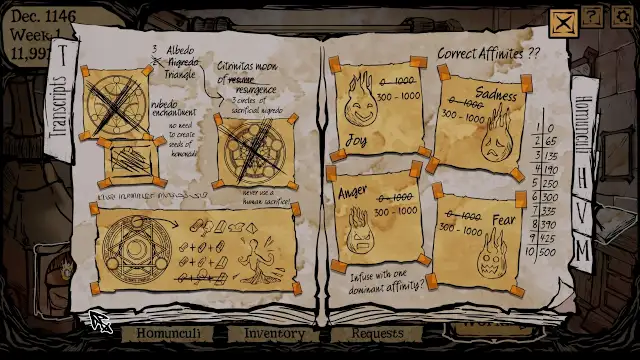 Dec. 1146
Week 1
11,99
T
Transcripts
3 Albedo
2 Nigredo
Triangle
Citonitas moon
of resume
resurgence
3 circles of
sacrificial nigredo
rubedo
enchantment
no need
to create
seeds of
homonculi
never use a
human sacrifice!
Correct Affinites ??
0-1000
300 - 1000
Joy
Sadness
0-1000
300 - 1000
Anger
0-1000
300 - 1000
0-1000
Fear
300 - 1000
Infuse with one
dominant affinity?
1 0
2 65
3 135
4 190
5 250
6 300
7 335
8 390
9 425
10 500
Homunculi
H
V
M
?
Homunculi
Inventory
Requests